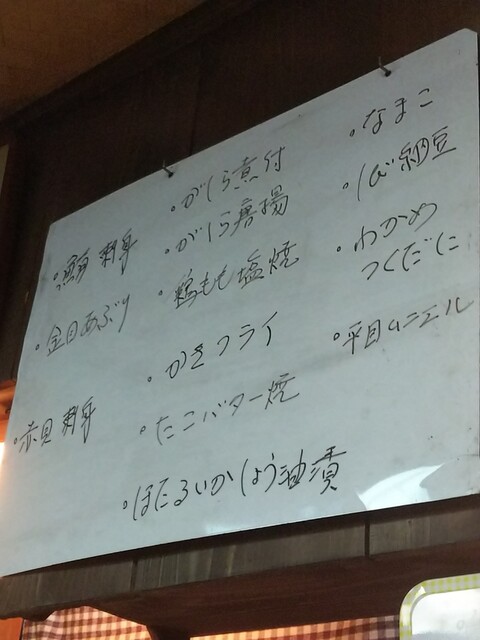 ・なまこ
・いか納豆
・わかめ
つくだに
・平目ムニエル
・がしら煮付
・がしら唐揚
・鶏もも塩焼
・かきフライ
・たこバター焼
・ほたるいかしょう油漬
刺身
・金目あぶり
・赤貝刺身